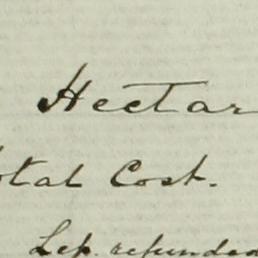 Hectar
otal Cost.
Lep. refunded